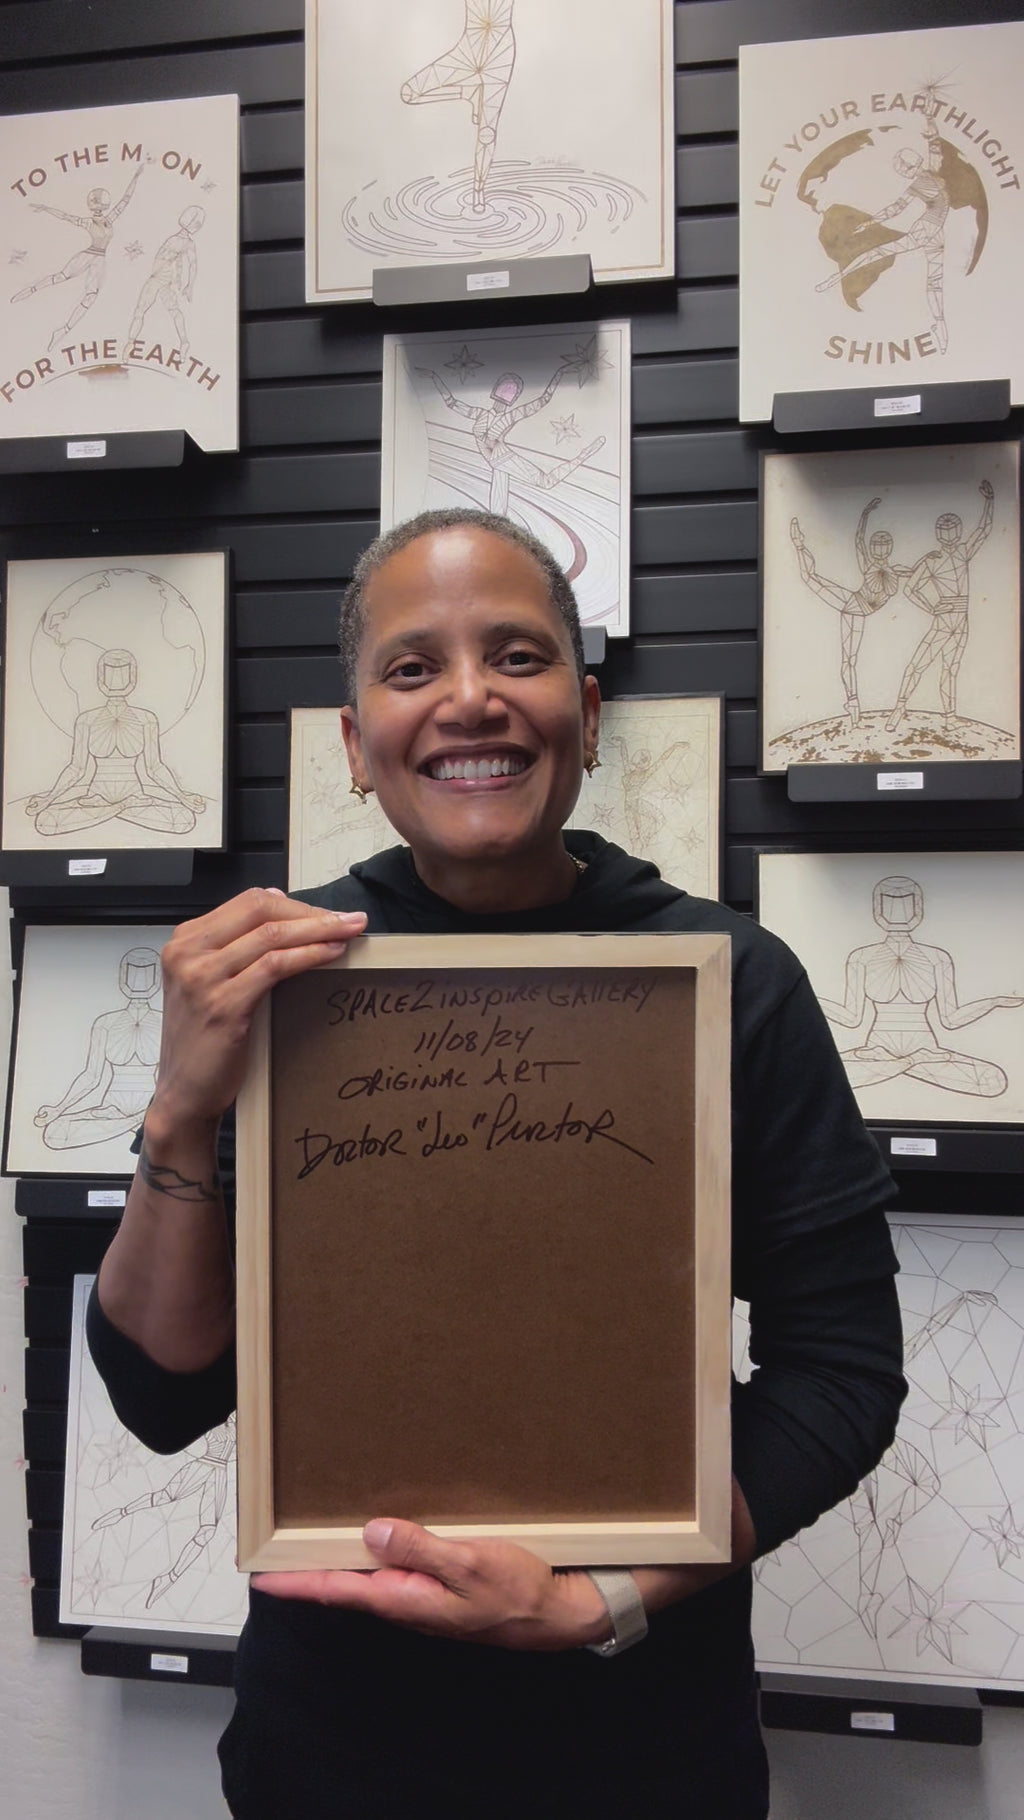 TO THE MOON
FOR THE EARTH
LET YOUR EARTHLIGHT
SHINE
SPACE2inspire GALLERY
11/08/24
ORIGINAL ART